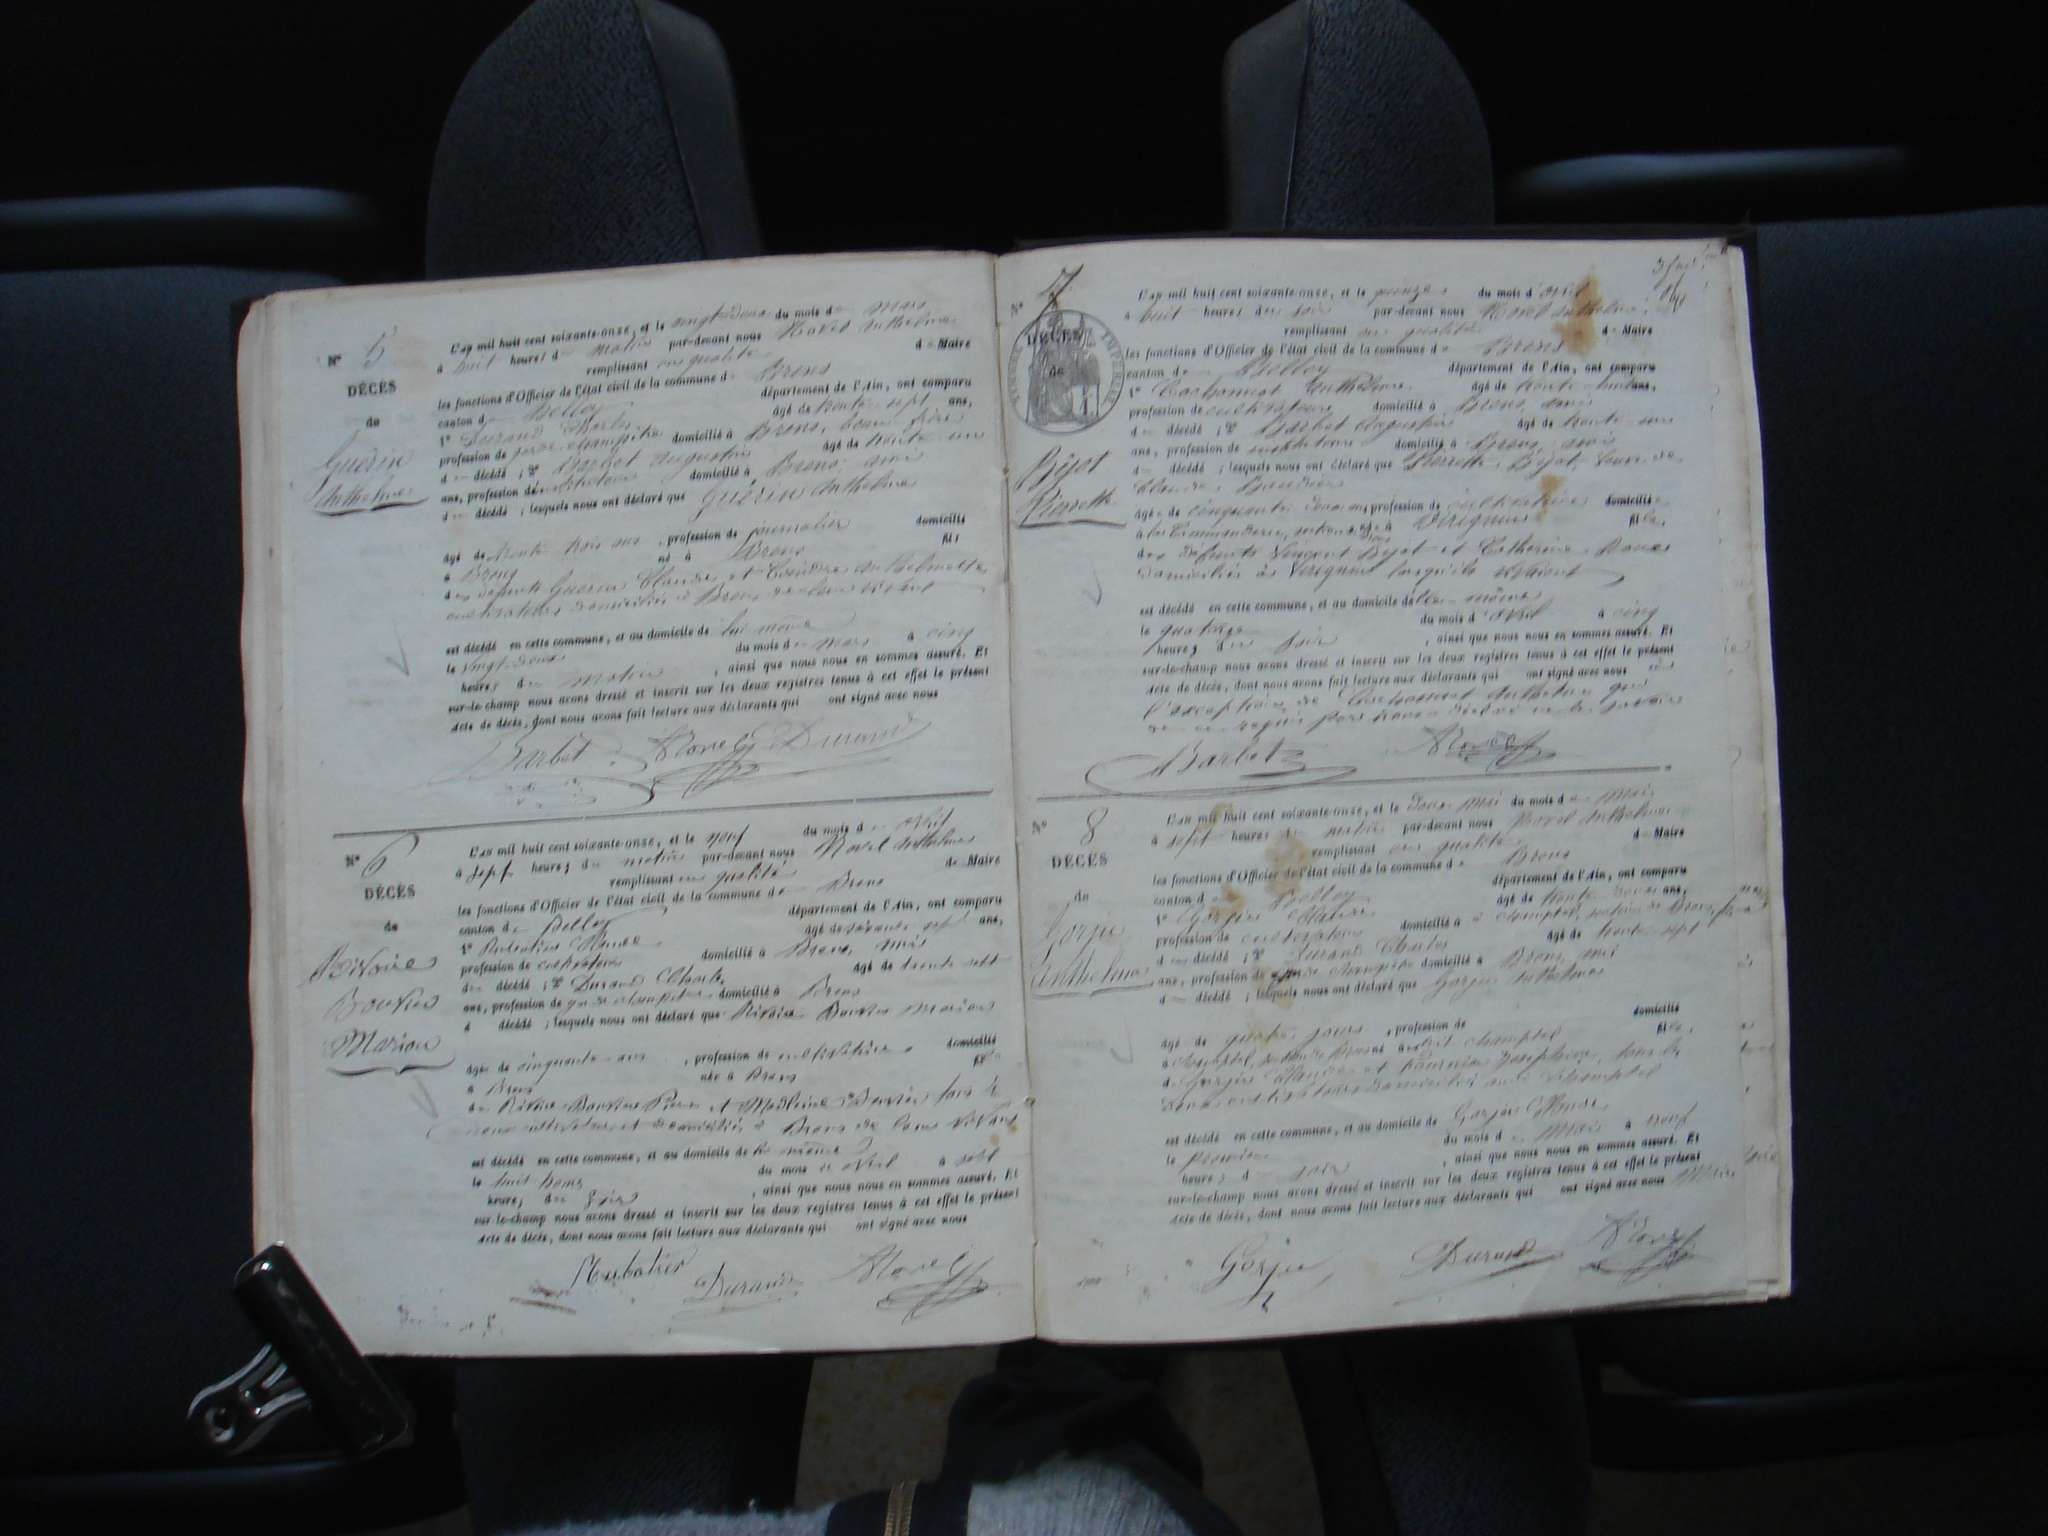 N° 5
DÉCÈS
de
Guérin
Anthelme
L'an mil huit cent soixante-onze, et le vingt-deux du mois de mars
à huit heures d matin par-devant nous Morel Anthelme
remplissant en qualité de Maire
les fonctions d'Officier de l'état civil de la commune de Brens
canton de Belley département de l'Ain, ont comparu
1° Durand Charles âgé de trente-sept ans,
profession de garde champêtre domicilié à Brens, beau frère
d décédé ; 2° Barbet Augustin âgé de trente un
ans, profession de domicilié à Brens, ami
d décédé ; lesquels nous ont déclaré que Guérin Anthelme
âgé de trente trois ans, profession de journalier domicilié
à Brens né à Brens fils
des défunts Guérin Claude et Anthelmette
cultivateurs domiciliés à Brens de leur vivant
est décédé en cette commune, et au domicile de lui même
le vingt-deux du mois de mars à cinq
heures d matin, ainsi que nous nous en sommes assuré. Et
sur-le-champ nous avons dressé et inscrit sur les deux registres tenus à cet effet le présent
acte de décès, dont nous avons fait lecture aux déclarants qui ont signé avec nous
Barbet Morel Durand
N° 6
DÉCÈS
de
Rivoire
Bouvier
Marion
L'an mil huit cent soixante-onze, et le neuf du mois d avril
à sept heures du matin par-devant nous Morel Anthelme
remplissant en qualité de Maire
les fonctions d'Officier de l'état civil de la commune de Brens
canton de Belley département de l'Ain, ont comparu
1° Claude âgé de sept ans,
profession de cultivateur domicilié à Brens, ami
d décédé ; 2° Durand Charles âgé de trente sept
ans, profession de garde champêtre domicilié à Brens
d décédé ; lesquels nous ont déclaré que Rivoire Bouvier Marion
âgée de cinquante ans, profession de cultivatrice domicilié
à Brens née à Brens fille
de Rivoire Bouvier Pierre et Madeleine Bouvier tous les
deux cultivateurs domiciliés à Brens de leur vivant
est décédé en cette commune, et au domicile de même
le huit du mois d avril à sept
heures du soir, ainsi que nous nous en sommes assuré. Et
sur-le-champ nous avons dressé et inscrit sur les deux registres tenus à cet effet le présent
acte de décès, dont nous avons fait lecture aux déclarants qui ont signé avec nous
Durand Morel
N° 7
DÉCÈS
de
TIMBRE IMPERIAL
Bijot
Pierrette
L'an mil huit cent soixante-onze, et le quinze du mois d'avril
à huit heures du soir par-devant nous Morel Anthelme
remplissant en qualité de Maire
les fonctions d'Officier de l'état civil de la commune de Brens
canton de Belley département de l'Ain, ont comparu
1° Cochonnat Anthelme âgé de trente-huit ans,
profession de cultivateur domicilié à Brens, ami
d décédé ; 2° Barbet Augustin âgé de trente un
ans, profession de domicilié à Brens, ami
d décédé ; lesquels nous ont déclaré que Pierrette Bijot, veuve de
Claude
âgée de cinquante deux ans, profession de cultivatrice domiciliée
à la Commanderie, née à Virignin fille
des défunts Vincent Bijot et Catherine Roux
domiciliés à Virignin lorsqu'ils vivaient
est décédé en cette commune, et au domicile d'elle-même
le quatorze du mois d'avril à cinq
heures du soir, ainsi que nous nous en sommes assuré. Et
sur-le-champ nous avons dressé et inscrit sur les deux registres tenus à cet effet le présent
acte de décès, dont nous avons fait lecture aux déclarants qui ont signé avec nous
l'exception de Cochonnat Anthelme qui
de ce requis par nous a déclaré ne le savoir
Barbet Morel
N° 8
DÉCÈS
de
Gorjie
Anthelme
L'an mil huit cent soixante-onze, et le deux mai du mois de mai
à sept heures du matin par-devant nous Morel Anthelme
remplissant en qualité de Maire
les fonctions d'Officier de l'état civil de la commune de Brens
canton de Belley département de l'Ain, ont comparu
1° Gorjie Claude âgé de trente ans,
profession de cultivateur domicilié à Champtel, section de Brens, père
d décédé ; 2° Durand Charles âgé de trente-sept
ans, profession de garde champêtre domicilié à Brens, ami
d décédé ; lesquels nous ont déclaré que Gorjie Anthelme
âgé de quatre jours, profession de domicilié
à Champtel, né audit Champtel fils
de Gorjie Claude et Joséphine, tous les
deux cultivateurs domiciliés audit Champtel
est décédé en cette commune, et au domicile de Gorjie Claude
le premier du mois de Mai à neuf
heures d soir, ainsi que nous nous en sommes assuré. Et
sur-le-champ nous avons dressé et inscrit sur les deux registres tenus à cet effet le présent
acte de décès, dont nous avons fait lecture aux déclarants qui ont signé avec nous Maire
Gorjie Durand Morel